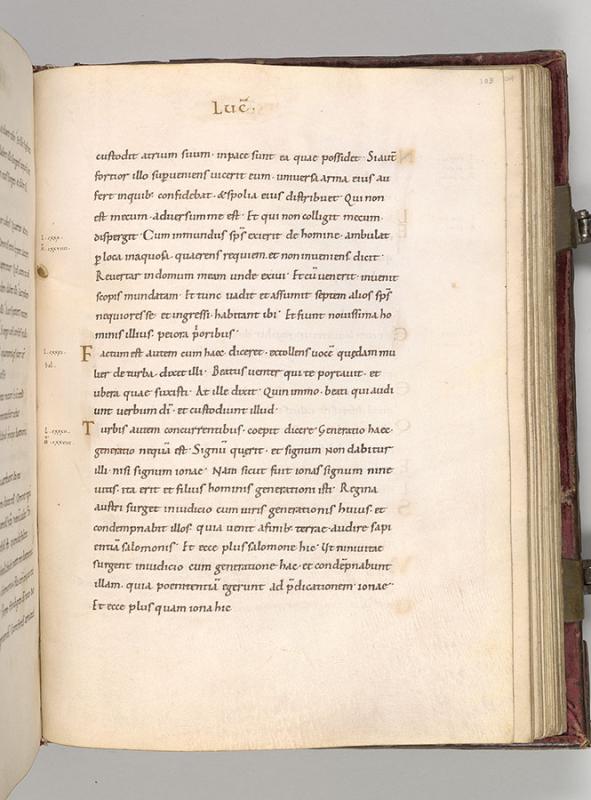 Luc̄.
custodit atrium suum· inpace sunt ea quae possidet· Siaut̄
fortior illo sup̱ueniens uicerit eum· uniuersa arma eius au
fert inquib; confidebat· &spolia eius distribuet· Qui non
est mecum· aduersumme est· Et qui non colligit mecum·
dispergit· Cum inmundus sp̄s exierit de homine· ambulat
p̱ loca inaquosa· quaerens requiem· et non inueniens dicit·
Reuertar in domum meam unde exiui· Et cū uenerit· inuenit
scopis mundatam· Et tunc uadit et assumit septem alios sp̄s
nequiores se· et ingressi· habitant ibi· Et fiunt nouissima ho
minis illius· peiora p̄oribus·
Factum est autem cum haec diceret· extollens uocē quędam mu
lier de turba· dixit illi· Beatus uenter qui te portauit· et
ubera quae suxisti· At ille dixit· Quin immo· beati qui audi
unt uerbum dī· et custodiunt illud·
Turbis autem concurrentibus· coepit dicere· Generatio haec·
generatio nequā est· Signū querit· et signum non dabitur
illi· nisi signum ionae· Nam sicut fuit ionas signum nine
uitis· ita erit et filius hominis generationi isti· Regina
austri surget iniudicio cum uiris generationis huius· et
condempnabit illos· quia uenit afinib; terrae· audire sapi
entiā salomonis· Et ecce plus salomone hic· Uiri niniuitae
surgent iniudicio cum generatione hac· et condēpnabunt
illam· quia poenitentiā egerunt ad p̄dicationem ionae·
Et ecce plus quam iona hic